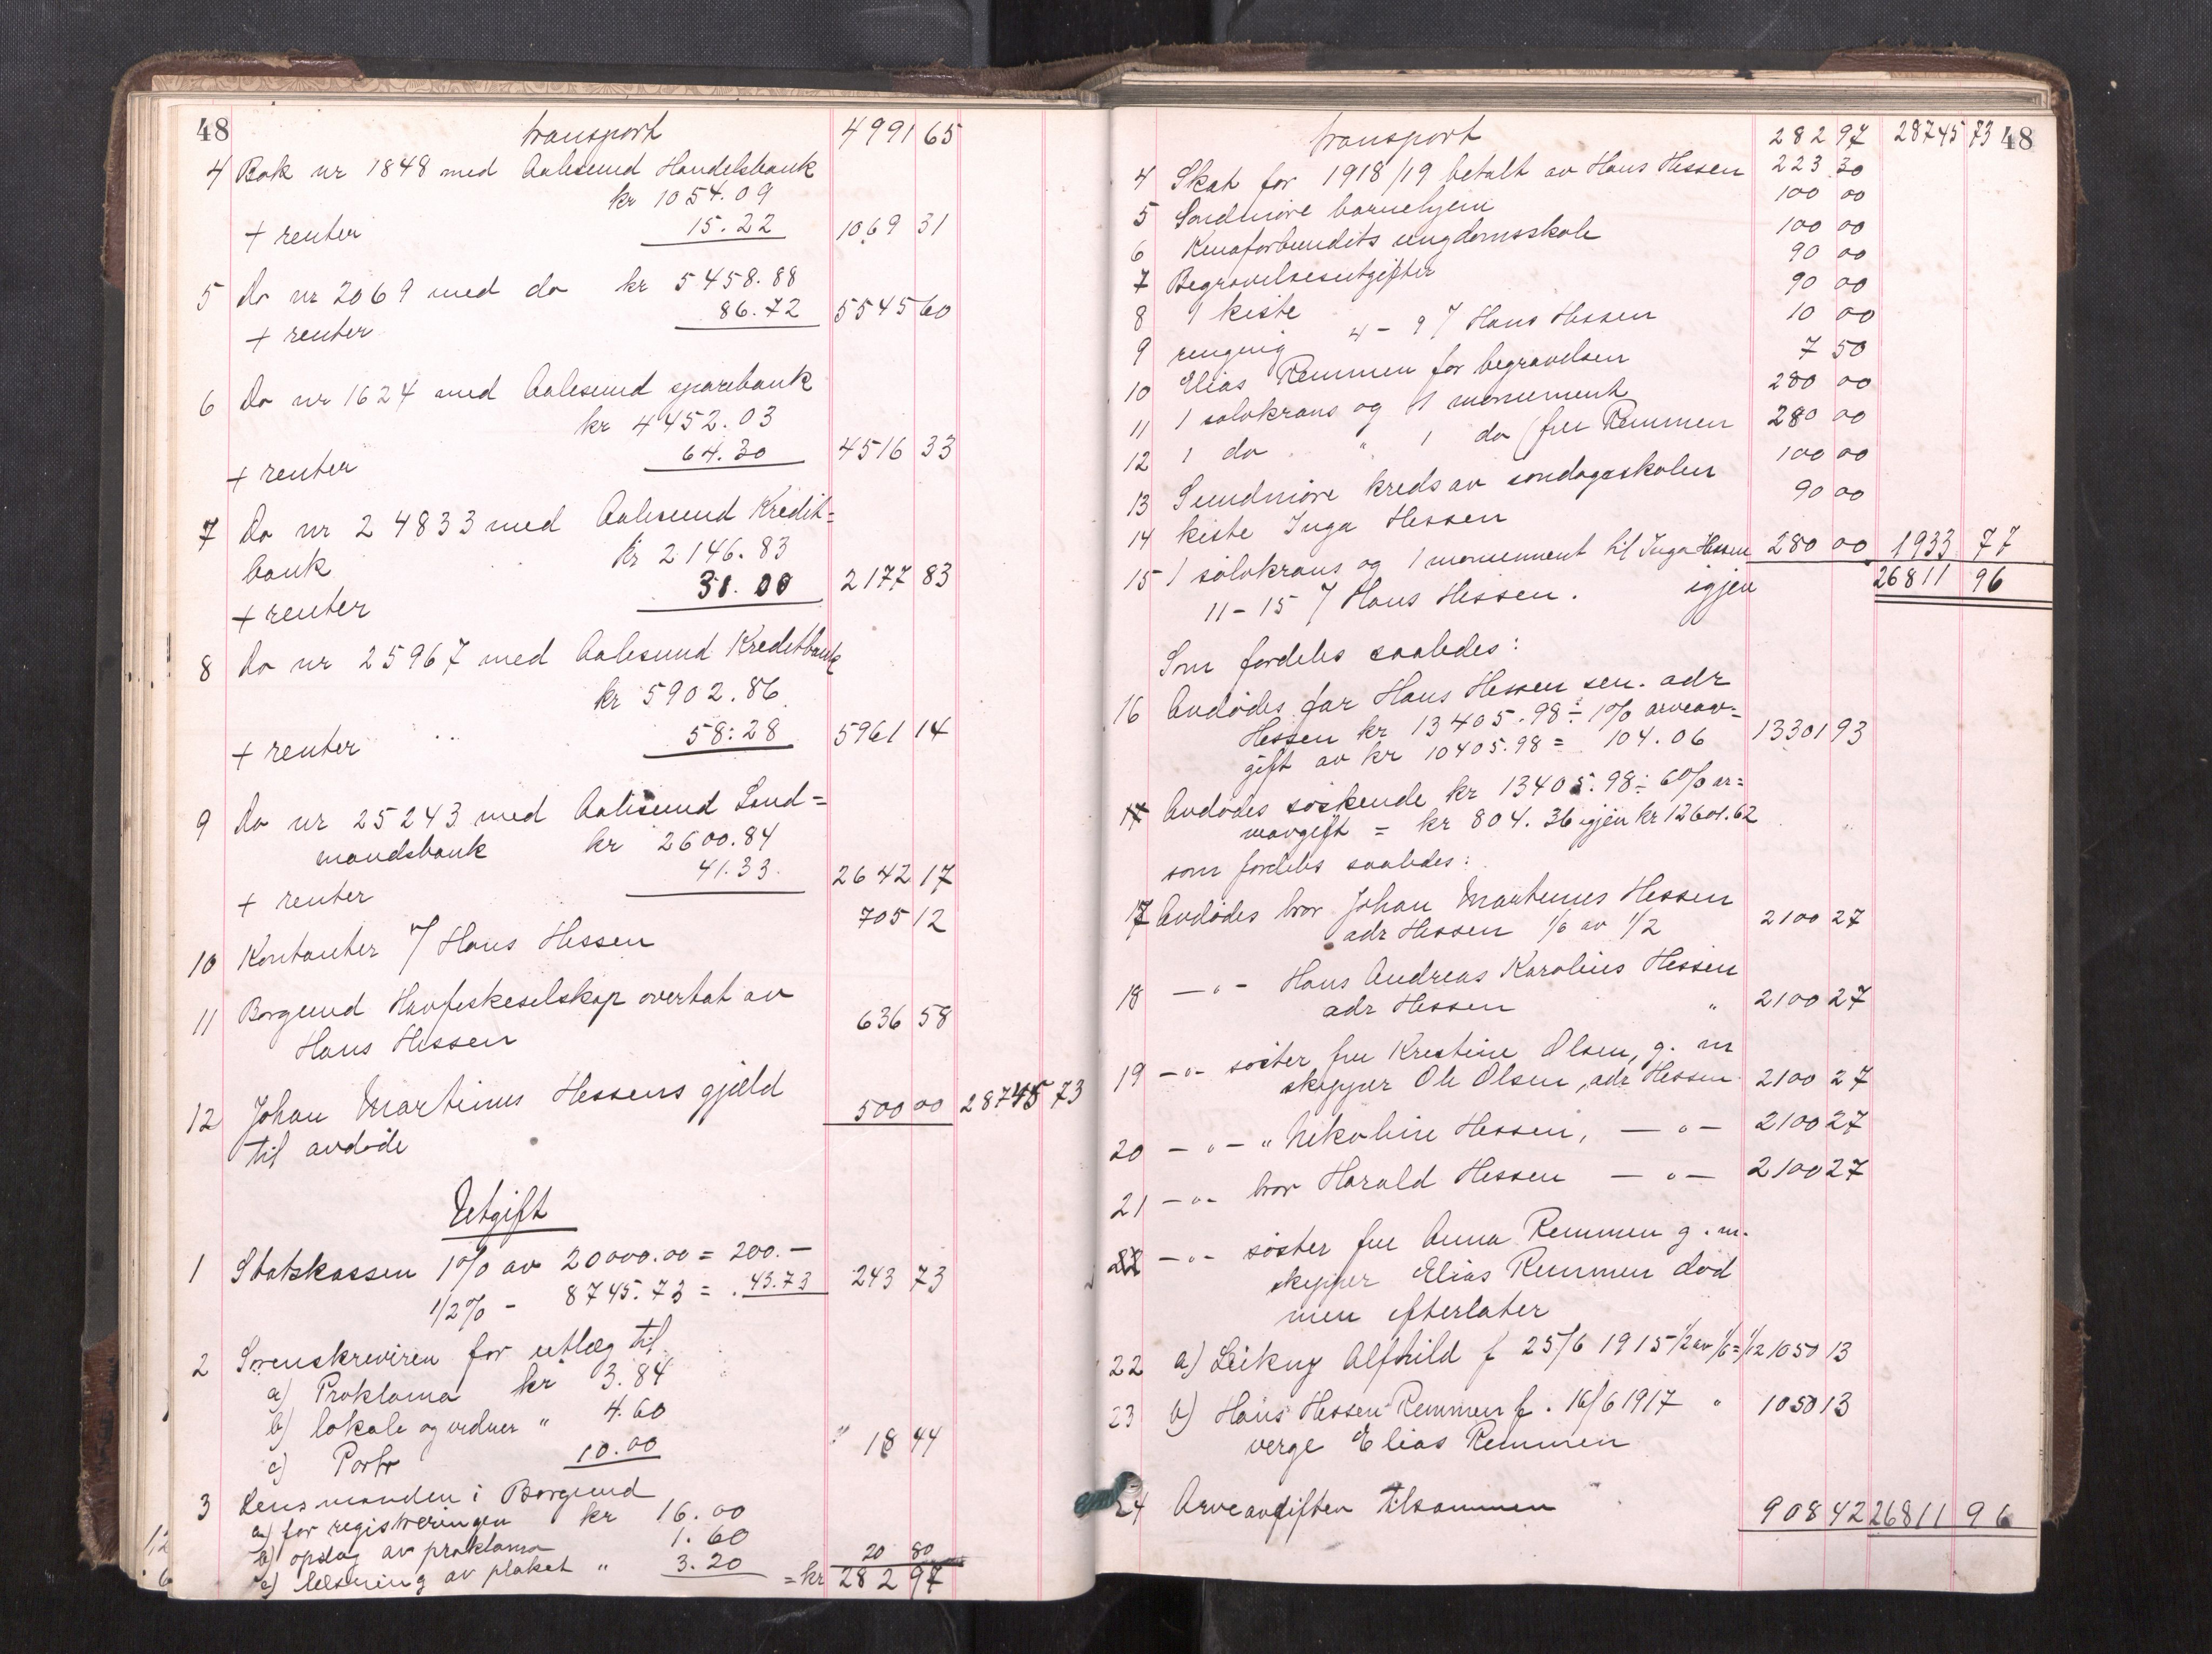 48 transport 4991 65
4 Bok nr 1848 med Aalesund Handelsbank
kr 1054.09
+ renter 15.22 1069 31
5 Do nr 2069 med do kr 5458.88
+ renter 86.72 5545 60
6 Do nr 1624 med Aalesund sparebank
kr 4452.03
+ renter 64.30 4516 33
7 Do nr 24833 med Aalesund Kredit=
bank kr 2146.83
+ renter 31.00 2177 83
8 Do nr 25967 med Aalesund Kreditbank
kr 5902.86
+ renter 58:28 5961 14
9 Do nr 25243 med Aalesund Land=
mandsbank kr 2600.84
+ renter 41.33 2642 17
10 Kontanter / Hans Hessen 705 12
11 Borgund Havfiskeselskap overtat av
Hans Hessen 636 58
12 Johan Martinus Hessens gjæld
til avdøde 500 00 28745 73
Utgift
1 Statskassen 1% av 20000.00 = 200.-
1/2% - 8745.73 = 43.73 243 73
2 Sorenskreviren for utlæg til
a) Proklama kr 3.84
b) lokale og vidner " 4.60
c) Porto 10.00 " 18 44
3 Lensmanden i Borgund
a) for registreringen kr 16.00
b) opslag av proklama 1.60
c) læsning av plakat " 3.20 20 80
= kr 282 97
transport 282 97 28745 73 48
4 Skat for 1918/19 betalt av Hans Hessen 223 30
5 Søndmøre barnehjem 100 00
6 Kinaforbundets ungdomsskole 100 00
7 Begravelsesutgifter 90 00
8 1 kiste 90 00
9 ringing 4 - 9 / Hans Hessen 10 00
10 Elias Remmen for begravelsen 7 50
11 1 sølvkrans og 1 monument 280 00
12 1 do " 1 do (fru Remmen 280 00
13 Sundmøre kreds av søndagsskolen 100 00
14 kiste Inga Hessen 90 00
15 1 sølvkrans og 1 monument til Inga Hessen 280 00 1933 77
11 - 15 / Hans Hessen. igjen 26811 96
Som fordeles saaledes:
16 Avdødes far Hans Hessen sen. adr
Hessen kr 13405.98 ÷ 1% arveav=
gift av kr 10405.98 = 104.06 13301 93
17 Avdødes søskende kr 13405.98 ÷ 6% ar=
veavgift = kr 804.36 igjen kr 12601.62
som fordeles saaledes:
17 Avdødes bror Johan Martinus Hessen
adr Hessen 1/6 av 1/2 2100 27
18 —"— Hans Andreas Karolius Hessen
adr Hessen " 2100 27
19 —"— søster fru Kristine Olsen, g. m
skipper Ole Olsen, adr Hessen 2100 27
20 —"— " Nikoline Hessen, —"— 2100 27
21 —"— bror Harald Hessen —"— 2100 27
22 —"— søster fru Anna Remmen g. m.
skipper Elias Remmen død
men efterlater
22 a) Leikny Alfhild f 25/6 1915 1/2 av 1/6 = 1/12 1050 13
23 b) Hans Hessen Remmen f. 16/6 1917 " 1050 13
verge Elias Remmen
24 Arveavgiften tilsammen 908 42 26811 96